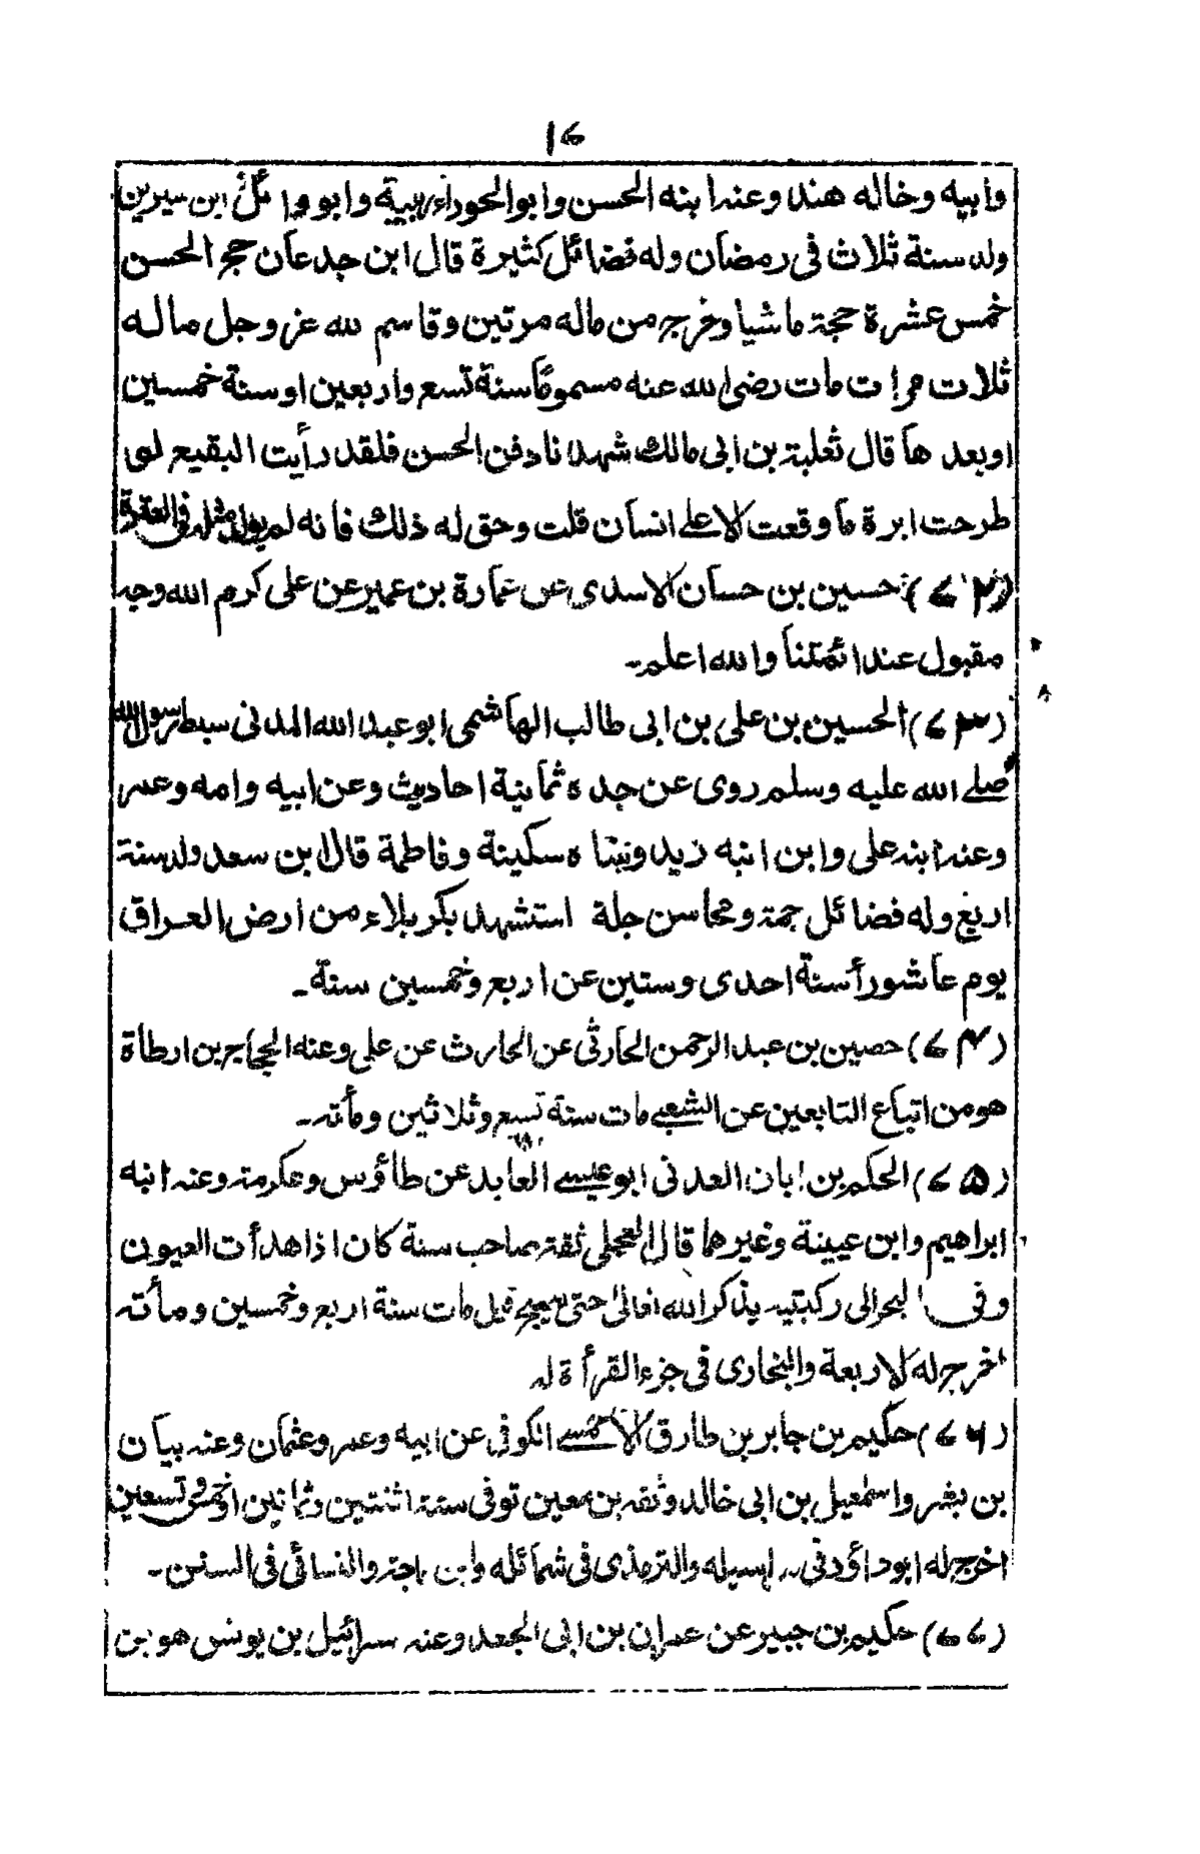 ۱۷
وابيه وخاله هند وعنه ابنه الحسن وابو الحوراء ربيبة وابو وائل ابن سيرين
ولد سنة ثلاث فى رمضان وله فضائل كثيرة قال ابن جدعان حجر الحسن
خمس عشرة حجة ماشيا وخرج من ماله مرتين وقاسم لله عز وجل ماله
ثلاث مرات مات رضى الله عنه مسموما سنة تسع واربعين او سنة خمسين
او بعدها قال ثعلبة بن ابى مالك شهدنا دفن الحسن فلقد رأيت البقيع لو
طرحت ابرة ما وقعت الا على انسان قلت وحق له ذلك فانه لم
(۷۲) حسين بن حسان الاسدى عن عمارة بن عمير عن على كرم الله وجه
مقبول عند ائمتنا والله اعلم۔
(۷۳) الحسين بن على بن ابى طالب الهاشمى ابو عبد الله المدنى سبط رسول الله
صلے الله عليه وسلم روى عن جده ثمانية احاديث وعن ابيه وامه وعمر
وعنه ابنه على وابن ابنه زيد وبنتاه سكينة وفاطمة قال ابن سعد ولد سنة
اربع وله فضائل جمة ومحاسن جلة استشهد بكربلاء من ارض العراق
يوم عاشورأ سنة احدى وستين عن اربع وخمسين سنة۔
(۷۴) حصين بن عبد الرحمن الحارثى عن الحارث عن على وعنه الحجاج بن ارطاة
هو من اتباع التابعين عن الشعبے مات سنة تسع وثلاثين ومأته۔
(۷۵) الحكم بن ابان العدنى ابو عيسے العابد عن طاؤس وعكرمة وعنه ابنه
ابراهيم وابن عيينة وغيرهما قال العجلى ثقة صاحب سنة كان اذا هدأت العيون
وقف البحر الى ركبتيه يذكر الله تعالىٰ حتى يصبح قيل مات سنة اربع وخمسين ومأته
اخرج له الاربعة والبخارى فى جزء القرأة له
(۷۶) حكيم بن جابر بن طارق الاحمسے الكوفى عن ابيه وعمر وعثمان وعنه بيان
بن بشر واسمٰعيل بن ابى خالد وثقه بن معين توفى سنة اثنتين وثمانين او خمس وتسعين
اخرج له ابو داؤد فى مراسيله والترمذى فى شمائله وابن ماجة والنسائى فى السنن۔
(۷۷) حكيم بن جبير عن عمران بن ابى الجعد وعنه سرائيل بن يونس هو بن ا